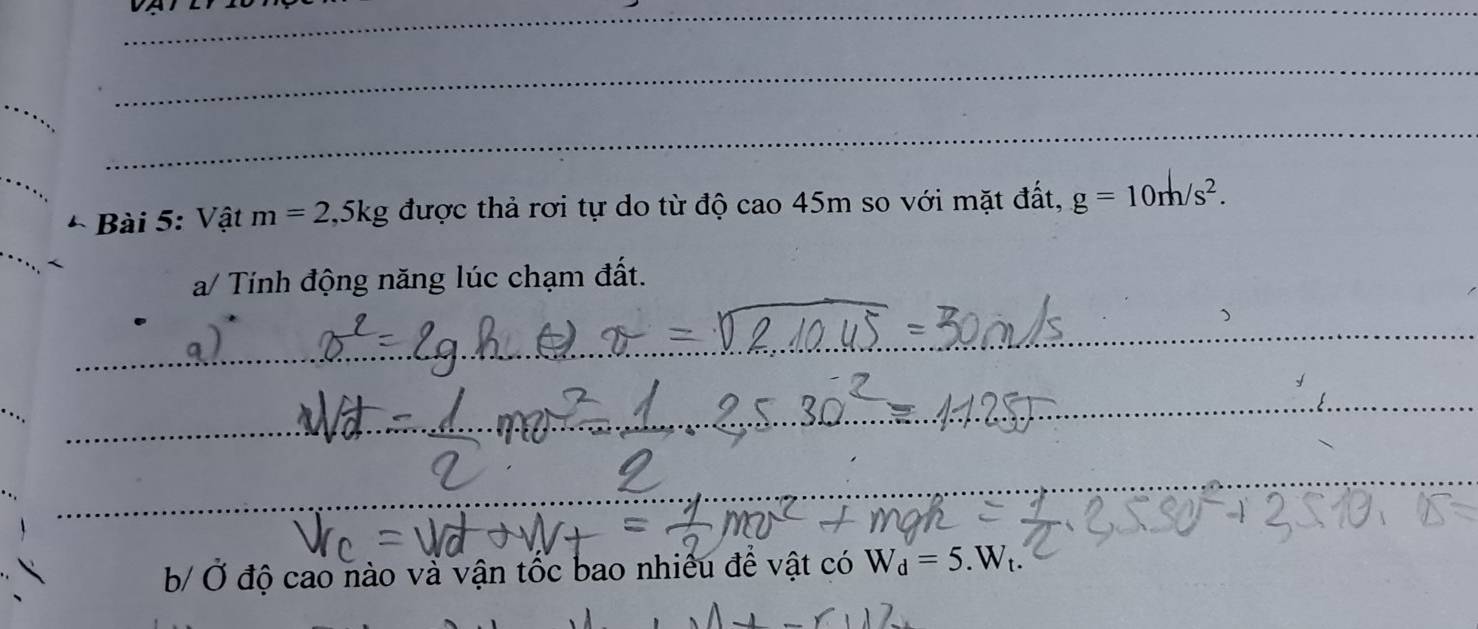 Bài 5: Vật m = 2,5kg được thả rơi tự do từ độ cao 45m so với mặt đất, g = 10m/s².
a/ Tính động năng lúc chạm đất.
a) v² = 2gh ⇔ v = √2.10.45 = 30 m/s
Wđ = 1/2 mv² = 1/2 . 2,5.30² = 1125J
Wc = Wđ + Wt = 1/2 mv² + mgh = 1/2 . 2,5.30² + 2,5.10.
b/ Ở độ cao nào và vận tốc bao nhiêu để vật có Wđ = 5.Wt.